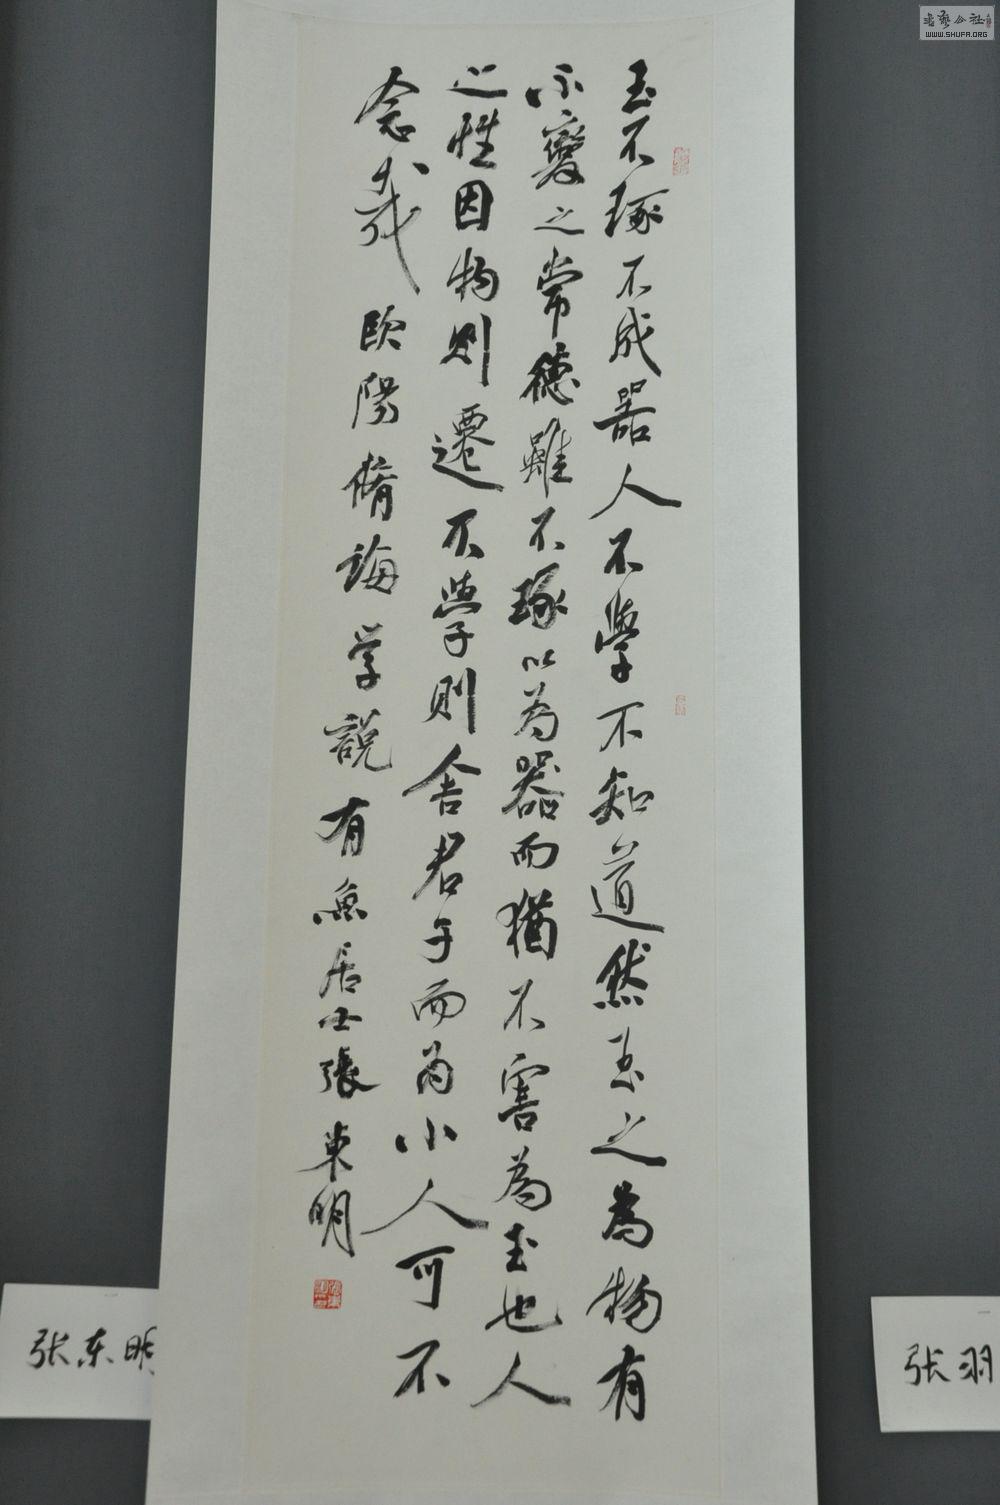 玉不琢不成器人不學不知道然玉之為物有
不變之常德雖不琢以為器而猶不害為玉也人
之性因物則遷不學則舍君子而為小人可不
念哉 歐陽脩誨学說 有魚居士張東明
张东明
张羽
WWW.SHUFA.ORG